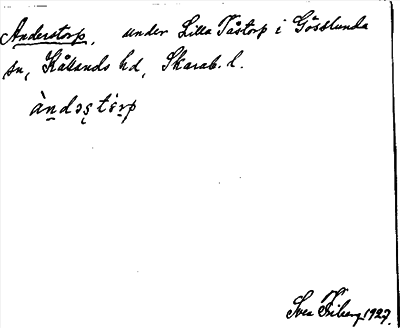 Anderstorp, under Lilla Tåstorp i Gösslunda
sn, Kållands hd, Skarab. l.
àndəʂtórp
Sven Friberg 1927.